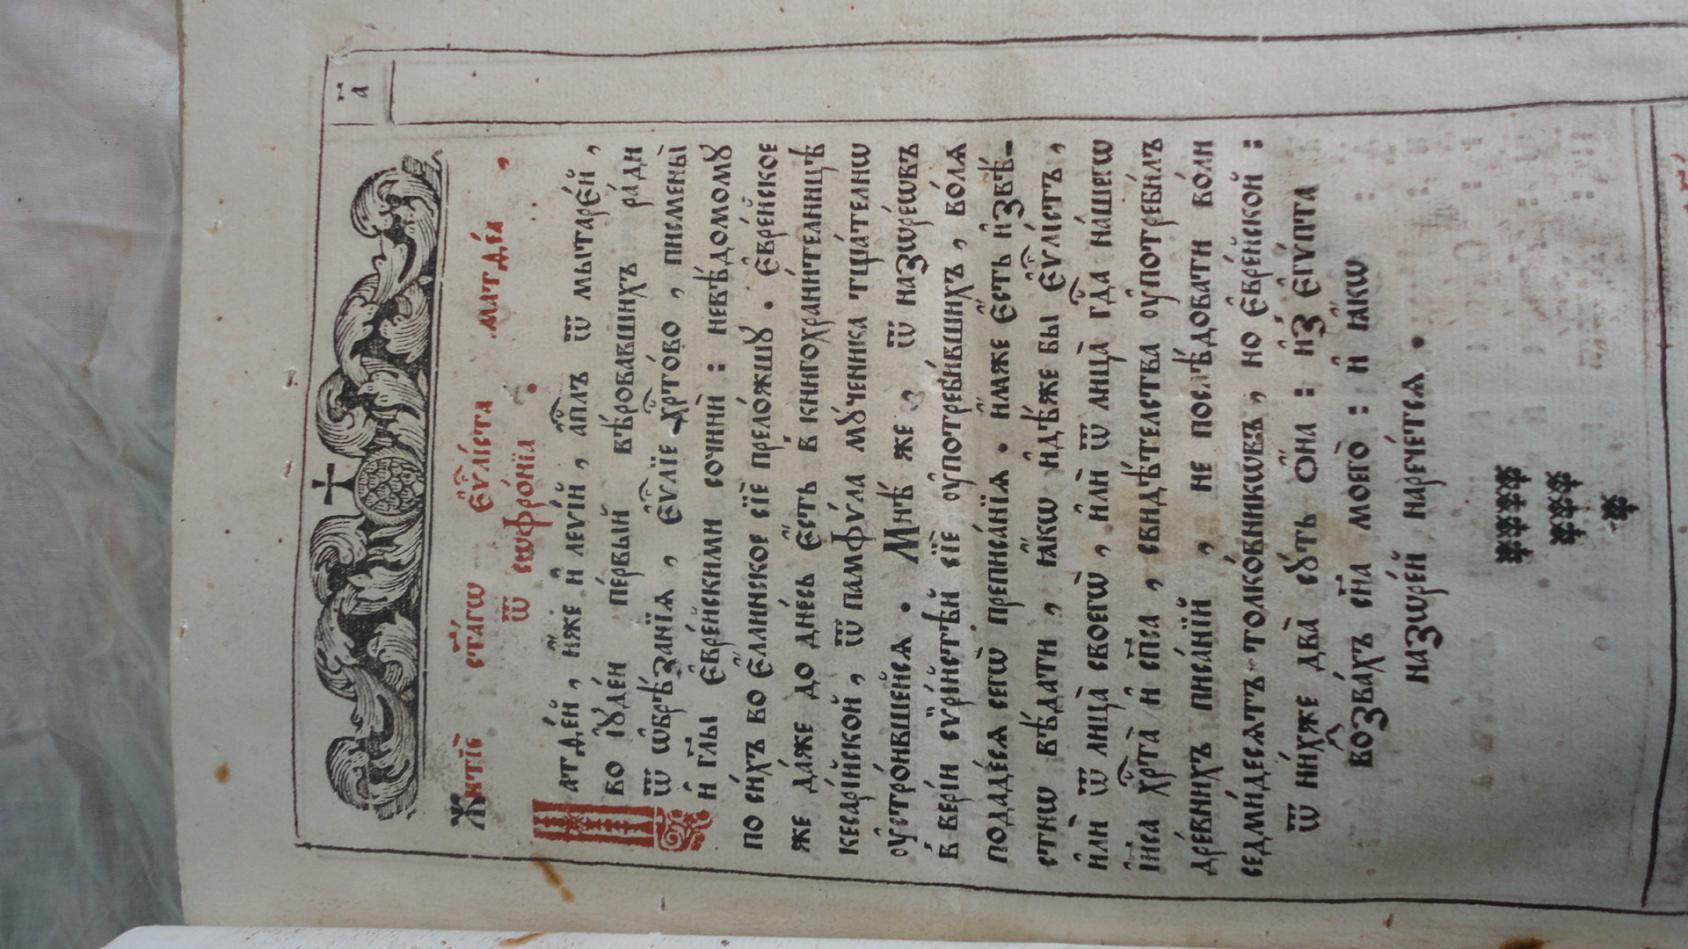 г҃і
Житїѐ ст҃а́гѡ є҆ѵⷢ҇лі́ста матѳе́а ,
ѿ сѡфро́нїа .
Матѳе́й , и҆́же и҆ леѵі́й , а҆пⷭ҇лъ ѿ мытаре́й ,
во і҆ꙋде́и пе́рвый вѣ́ровавшихъ ра́ди
ѿ ѡ҆брѣ́занїѧ , є҆ѵⷢ҇лїе хрⷭ҇то́во , писмены̀
и҆ гл҃ы є҆вре́йскими сочинѝ : невѣ́домомꙋ
по си́хъ во є҆́ллинское сїѐ прело́жшꙋ . є҆вре́йское
же да́же до дне́сь є҆́сть в̾ книгохрани́телницѣ
кесарі́йской , ѿ памфѵ́ла мꙋ́ченика тща́телнѡ
ᲂу҆стро́ившейсѧ . Мнѣ́ же , ѿ назѡре́ѡвъ
в̾ вері́и сѵ́рїйстѣй сїѐ ᲂу҆потреби́вшихъ , во́лѧ
подаде́сѧ сегѡ̀ преписа́нїѧ . и҆́мже є҆́сть и҆звѣ́-
стнѡ вѣ́дати , ꙗ҆́кѡ и҆дѣ́же бы є҆ѵⷢ҇лі́стъ ,
и҆лѝ ѿ лица̀ своегѡ̀ , и҆лѝ ѿ лица̀ гдⷭ҇а на́шегѡ
і҆и҃са хрⷭ҇та̀ и҆ сп҃са , свидѣ́телства ᲂу҆потреби́лъ
дре́внихъ писа́нїй , не послѣ́довати во́ли
седми́десѧтъ толко́вникѡвъ , но є҆вре́йской :
ѿ ни́хже два̀ сꙋ́ть ѻ҆́на : и҆з̾ є҆гѵ́пта
возва́хъ сн҃а моего̀ : и҆ ꙗ҆́кѡ
назѡре́й нарече́тсѧ .